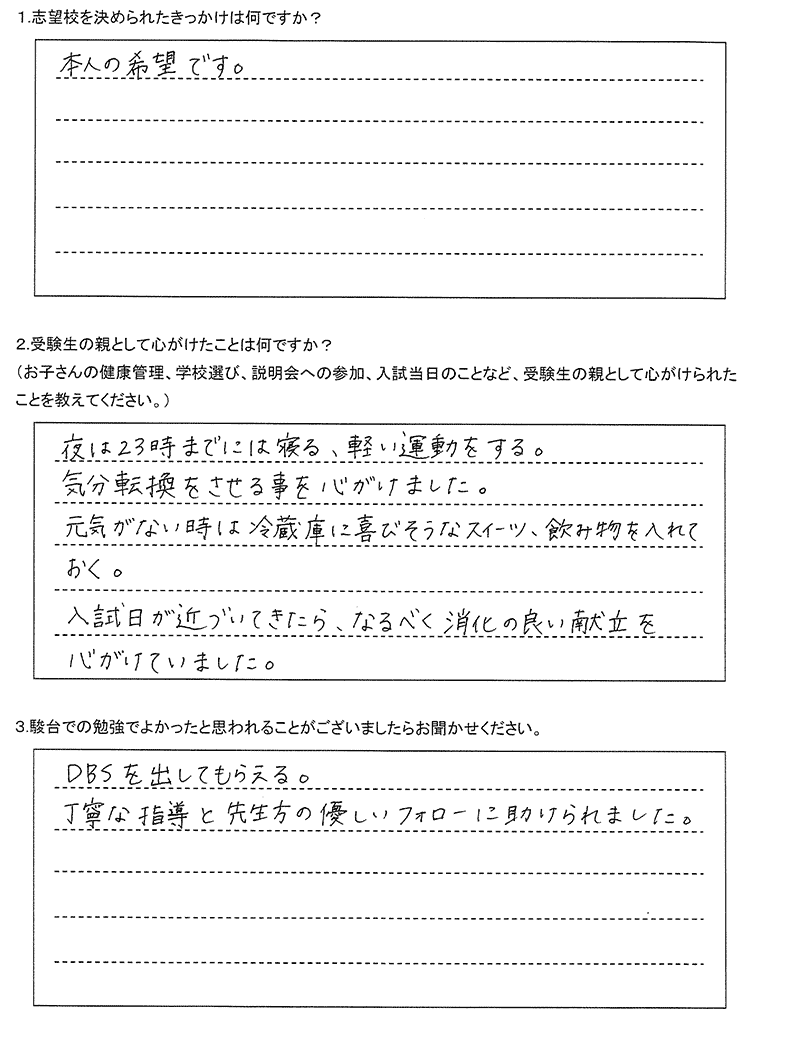 1.志望校を決められたきっかけは何ですか？
本人の希望です。
2.受験生の親として心がけたことは何ですか？
（お子さんの健康管理、学校選び、説明会への参加、入試当日のことなど、受験生の親として心がけられた
ことを教えてください。）
夜は23時までには寝る、軽い運動をする。
気分転換をさせる事を心がけました。
元気がない時は冷蔵庫に喜びそうなスイーツ、飲み物を入れて
おく。
入試日が近づいてきたら、なるべく消化の良い献立を
心がけていました。
3.駿台での勉強でよかったと思われることがございましたらお聞かせください。
DBSを出してもらえる。
丁寧な指導と先生方の優しいフォローに助けられました。